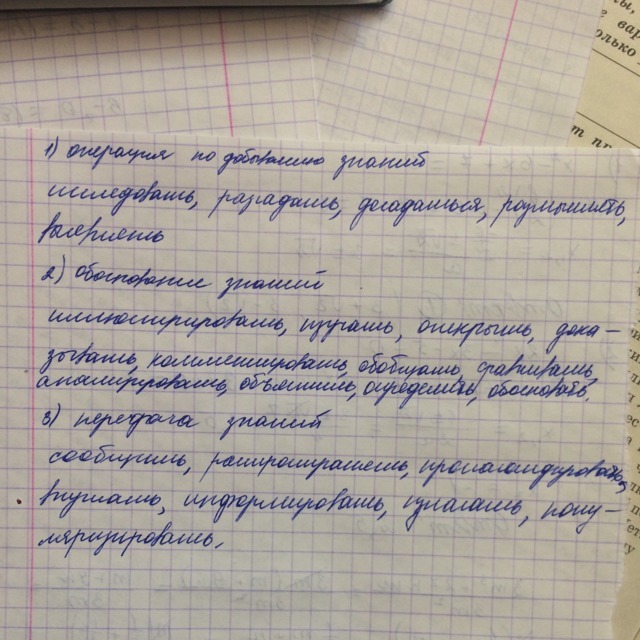 1) операция по добыванию знаний
исследовать, разгадать, догадаться, размышлять,
выяснять
2) обоснование знаний
иллюстрировать, изучать, открыть, дока-
зывать, комментировать, обобщать, сравнивать
анализировать, объяснить, определять, обосновать.
3) передача знаний
сообщить, распространять, пропагандировать,
внушать, информировать, излагать, попу-
ляризировать.